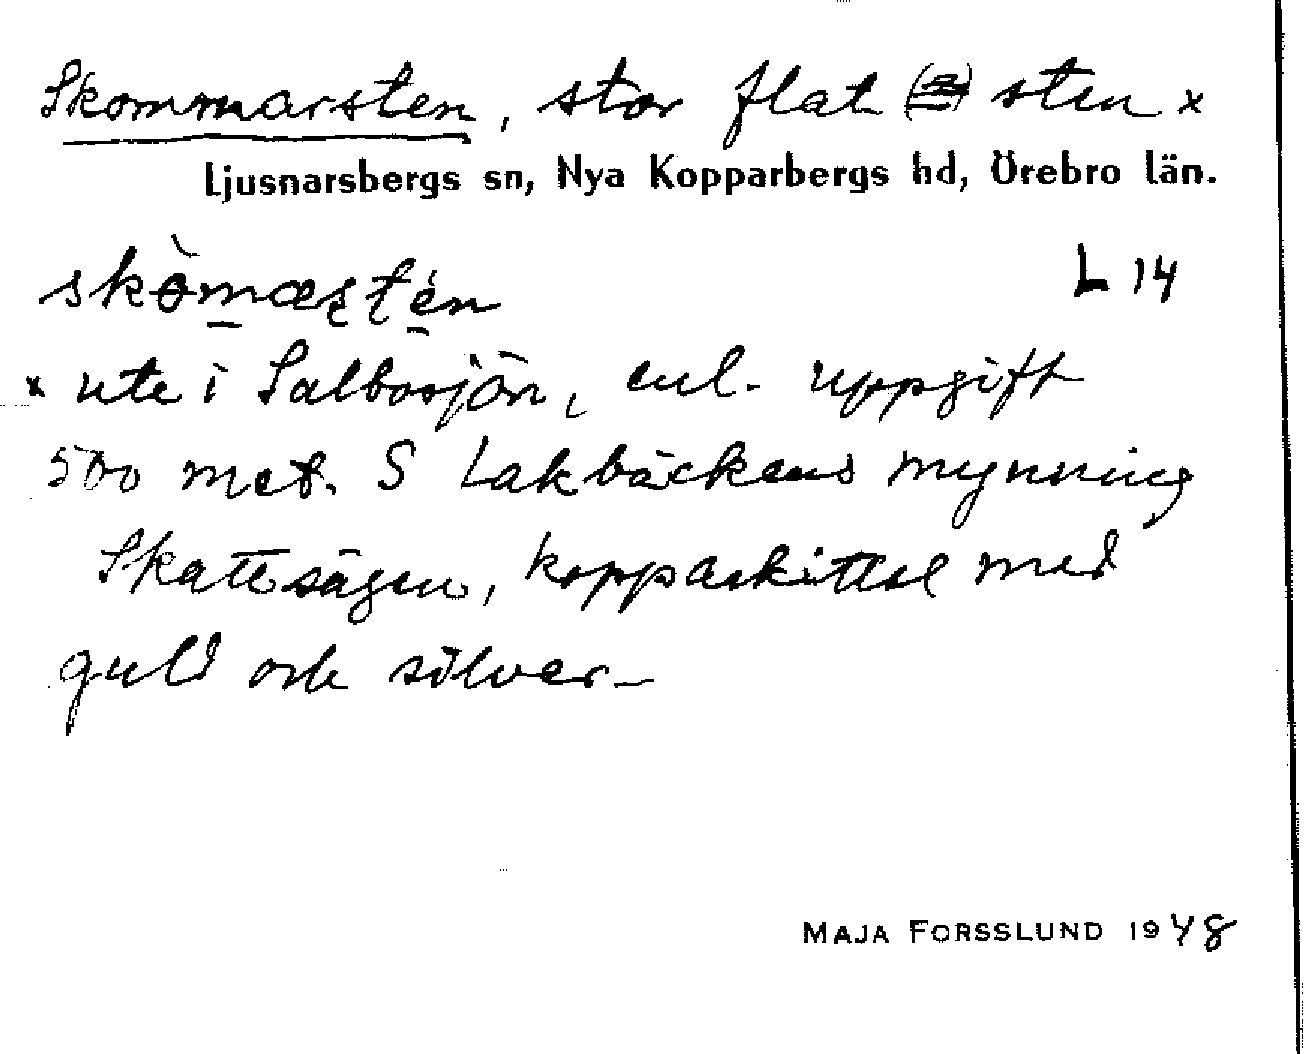 Skommarsten, stor flat sten x
Ljusnarsbergs sn, Nya Kopparbergs hd, Örebro län.
L 14
x ute i Salbosjön, enl. uppgift
500 met. S Lakbäckens mynning
Skattesägen, kopparkittel med
guld och silver.
MAJA FORSSLUND 1948